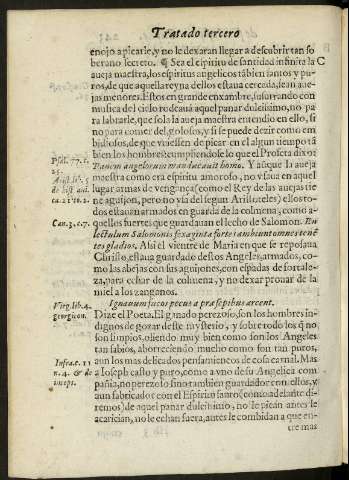 Tratado tercero
enojo a picarle, y no le dexaran llegar a descubrir tan so
berano secreto. ¶ Sea el espiritu de santidad infinita la C
aueja maestra, los espiritus angelicos tãbien santos y pu-
ros, de que aquella reyna dellos estaua cercada, sean aue-
jas menores. Estos en grande enxambre, susurrando con
musica del cielo rodeauã aquel panar dulcissimo, no pa
ra labrarle, que sola la aueja maestra entendio en ello, si
no para comer del, golosos, y si se puede dezir como em
bidiosos, de que viniessen de picar en el algun tiempo tã
Psal. 77. v.
bien los hombres: cumpliendose lo que el Profeta dixo:
25.
Panem angelorum manducauit homo. Y aũque la aueja
Arist. lib. 5
maestra como era espiritu amoroso, no vsaua en aquel
de hist. ani.
lugar armas de vengança (como el Rey de las auejas tie
ca. 21. 10. 2.
ne aguijon, pero no vsa del segun Aristoteles) ellos to-
dos estauan armados en guarda de la colmena, como a-
Can. 3. v. 7.
quellos fuertes que guardauan el lecho de Salomon. En
lectulum Salomonis sexaginta fortes ambiunt omnes tenẽ
tes gladios. Assi el vientre de Maria en que se reposaua
Christo, estaua guardado destos Angeles armados, co-
mo las abejas con sus aguijones, con espadas de fortale-
za, para echar de la colmena, y no dexar prouar de la
miel a los zanganos.
Virg. lib. 4.
Ignauum fucos pecus a præsepibus arcent.
georgicon.
Dize el Poeta. El ganado perezoso, son los hombres in-
dignos de gozar deste mysterio, y sobre todo los q̃ no
son limpios, oliendo muy bien como son los Angeles
tan sabios, aborreciendo mucho como son tan puros,
Infra c. 11.
aun los mas delicados pensamientos de cosa carnal. Mas
n. 4. & de
a Ioseph casto y puro, como a vno de su Angelica com
inceps.
pañia, no perezoso sino tambien guardador con ellos, y
aun fabricador con el Espiritu santo (como adelante di-
remos) de aquel panar dulcissimo, no le pican antes le
acarician, no le echan fuera, antes le combidan a que en-
tre mas